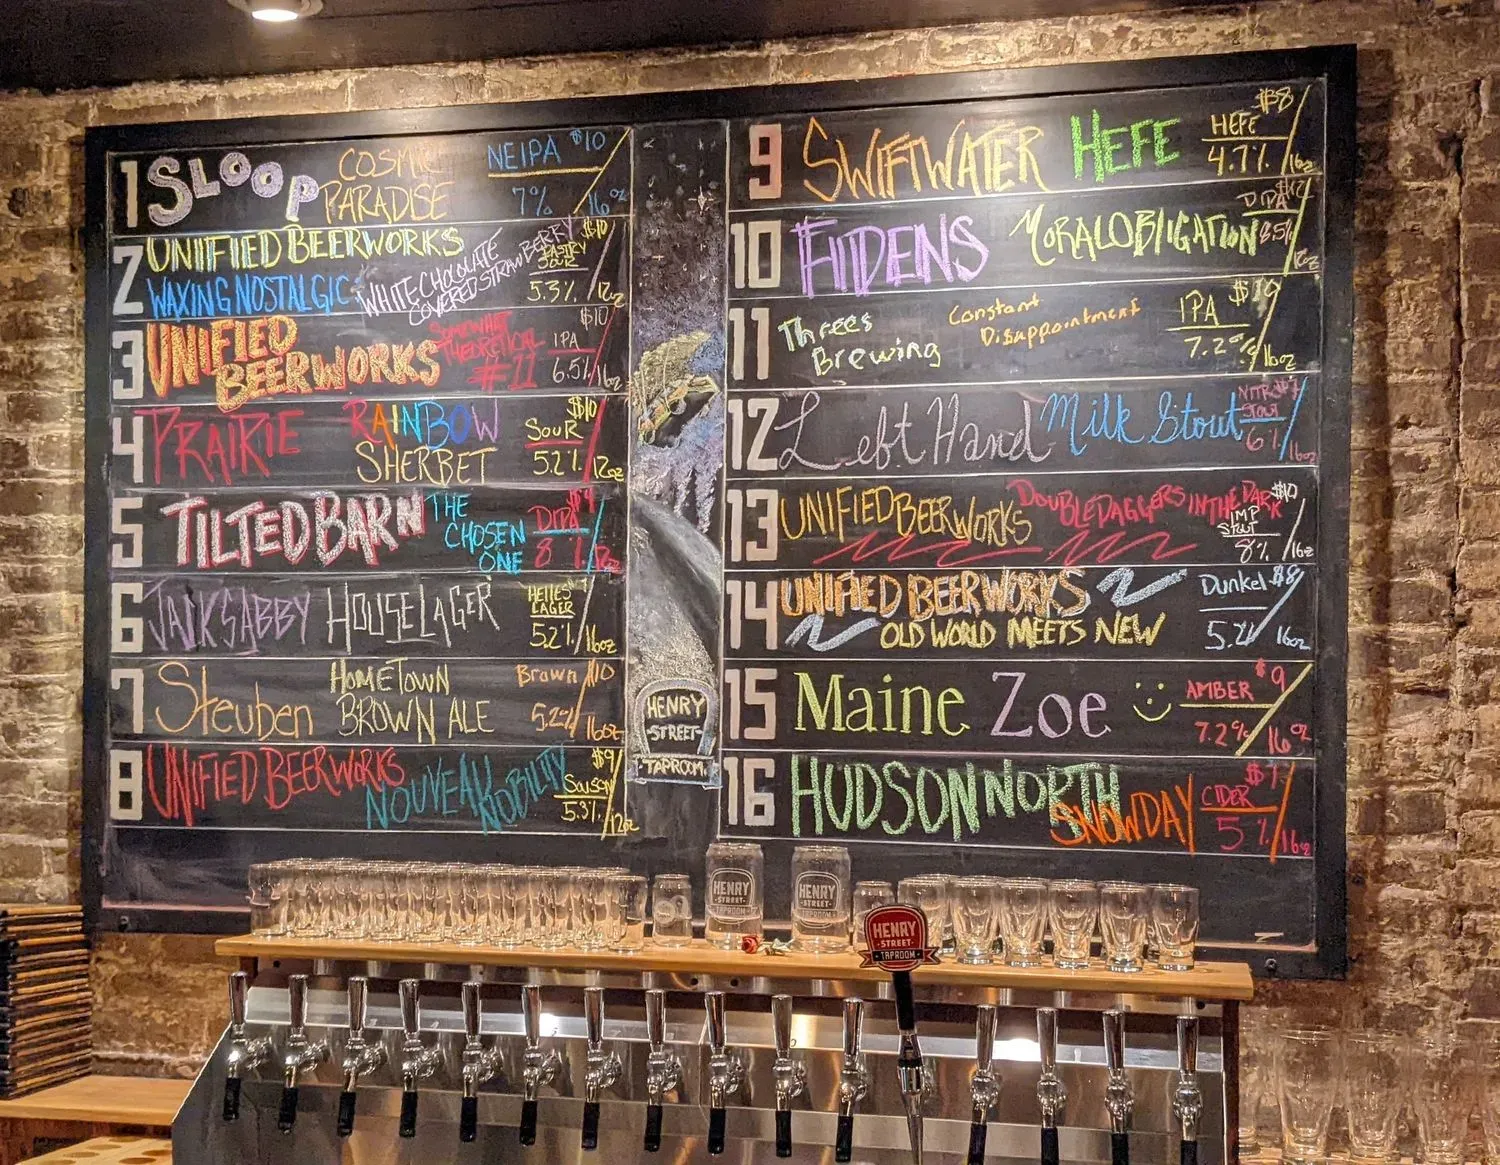 1 SLOOP COSMIC PARADISE NEIPA $10 7% 16oz
2 UNIIFIED BEERWORKS $10
WAXING NOSTALGIC WHITE CHOCOLATE COVERED STRAWBERRY PASTRY SOUR 5.3% 12oz
3 UNIFIED BEERWORKS SOMEWHAT THEORETICAL #11 IPA $10 6.5% 16oz
4 PRAIRIE RAINBOW SHERBET SOUR $10 5.2% 12oz
5 TILTED BARN THE CHOSEN ONE DIPA 8% 12oz
6 JACK'S ABBY HOUSE LAGER HELLES LAGER 5.2% 16oz
7 Steuben HOMETOWN BROWN ALE Brown $10 5.2% 16oz
8 UNIFIED BEERWORKS NOUVEAU NOBILITY Saison $9 5.3% 12oz
HENRY
-STREET-
TAPROOM
9 SWIFTWATER HEFE HEFE $8 4.7% 16oz
10 FIIDENS MORAL OBLIGATION DIPA $12 8.5% 12oz
11 Threes Brewing Constant Disappointment IPA $10 7.2% 16oz
12 Left Hand Milk Stout NITRO Stout 6% 16oz
13 UNIFIED BEERWORKS DOUBLE DAGGERS IN THE DARK IMP STOUT $10 8% 16oz
14 UNIFIED BEERWORKS OLD WORLD MEETS NEW Dunkel $8 5.2% 16oz
15 Maine Zoe AMBER $9 7.2% 16oz
16 HUDSON NORTH SNOWDAY CIDER 5% 16oz
HENRY
STREET
TAPROOM
HENRY
STREET
TAPROOM
HENRY
STREET
TAPROOM